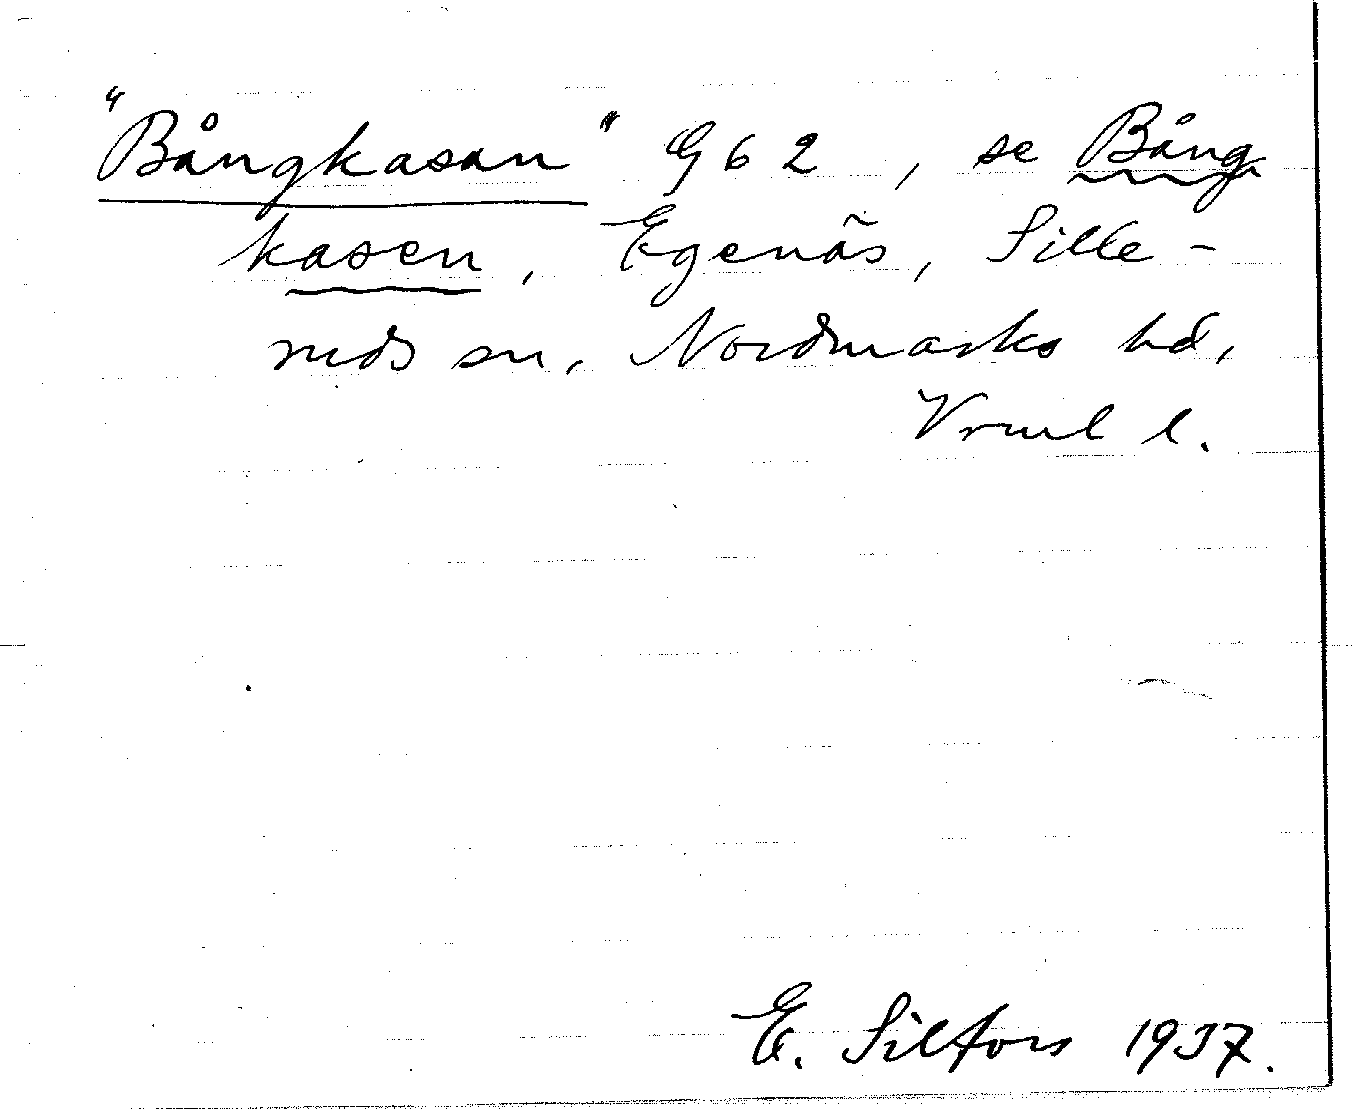 "Bångkasan" G 6 2, se Bång
kasen, Egenäs, Sille-
ruds sn, Nordmarks hd,
Vrml l.
E. Silfors 1937.